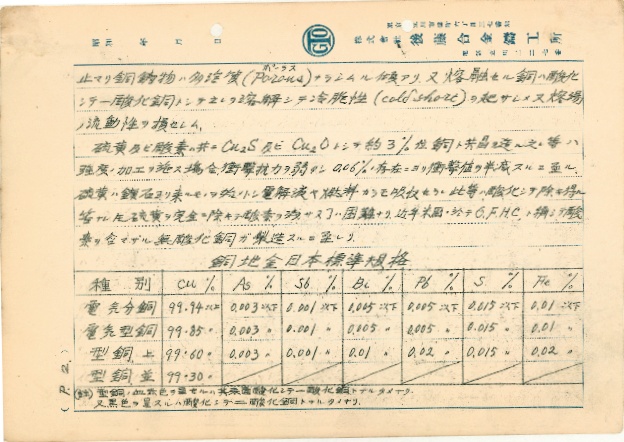 昭和 年 月 日
GTO
株式会社 後藤合金鑄工所
止マリ銅鋳物ハ多溶質(Porous)ナラシムル傾アリ又熔融セル銅ハ酸化
シテ一酸化銅トシテヨク溶解シテ冷脆性(cold short)ヲ起サシメ又熔場
ノ流動性ヲ損セシム
硫黄及ビ酸素ハ共ニCu2S及ビCu2Oトシテ約3%
強度 加工ヲ 場合衝撃抗力ヲ弱メ 0.06% 存在ニヨリ衝撃値ヲ半減スルニ至ル
硫黄ハ鑛石ヨリ来ル 電解液ヤ燃料カラモ吸收セラレ此等ハ酸化シテ除キ得
硫黄ヲ完全ニ除キテ酸素ヲ残サヌコハ困難ナリ近年米国ニ於テO.F.H.C.ト稱シテ酸
素ヲ含マザル無酸化銅ガ製造スルニ至レリ
銅地金日本標準規格
種別 Cu % As % Sb % Bi % Pb % S % Fe %
電気分銅 99.94以上 0.003以下 0.001以下 0.005以下 0.005以下 0.015以下 0.01以下
電気型銅 99.85〃 0.003〃 0.001〃 0.005〃 0.005〃 0.015〃 0.01〃
型銅上 99.60〃 0.003〃 0.001〃 0.01〃 0.02〃 0.015〃 0.02〃
型銅並 99.30〃
(註) 型銅ノ 赤色ヲ呈セルハ其表面酸化シテ一酸化銅トナルタメナリ.
又黒色ヲ呈スルハ酸化シテ二酸化銅トナルタメナリ.
(P.2.)